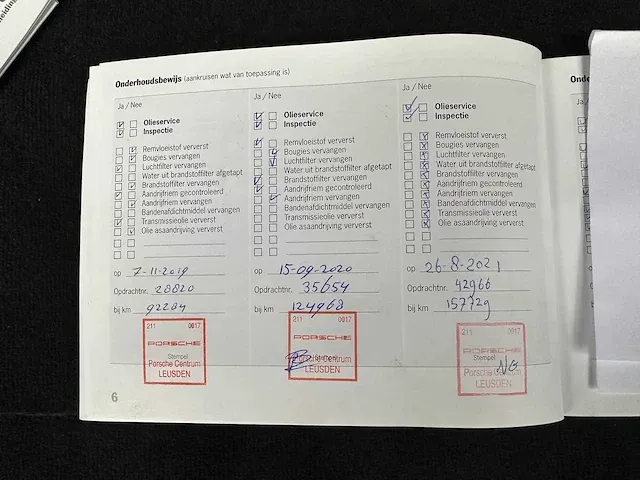 Onderhoudsbewijs (aankruisen wat van toepassing is)
Ja / Nee
Olieservice
Inspectie
Remvloeistof ververst
Bougies vervangen
Luchtfilter vervangen
Water uit brandstoffilter afgetapt
Brandstoffilter vervangen
Aandrijfriem gecontroleerd
Aandrijfriem vervangen
Bandenafdichtmiddel vervangen
Transmissieolie ververst
Olie asaandrijving ververst
op 7-11-2019
Opdrachtnr. 28820
bij km 92284
211 0017
PORSCHE
Stempel
Porsche Centrum
LEUSDEN
6
Ja / Nee
Olieservice
Inspectie
Remvloeistof ververst
Bougies vervangen
Luchtfilter vervangen
Water uit brandstoffilter afgetapt
Brandstoffilter vervangen
Aandrijfriem gecontroleerd
Aandrijfriem vervangen
Bandenafdichtmiddel vervangen
Transmissieolie ververst
Olie asaandrijving ververst
op 15-09-2020
Opdrachtnr. 35654
bij km 124968
211 0017
PORSCHE
Porsche Centrum
LEUSDEN
Ja / Nee
Olieservice
Inspectie
Remvloeistof ververst
Bougies vervangen
Luchtfilter vervangen
Water uit brandstoffilter afgetapt
Brandstoffilter vervangen
Aandrijfriem gecontroleerd
Aandrijfriem vervangen
Bandenafdichtmiddel vervangen
Transmissieolie ververst
Olie asaandrijving ververst
op 26-8-2021
Opdrachtnr. 42966
bij km 157729
211 0017
PORSCHE
Stempel
Porsche Centrum
LEUSDEN